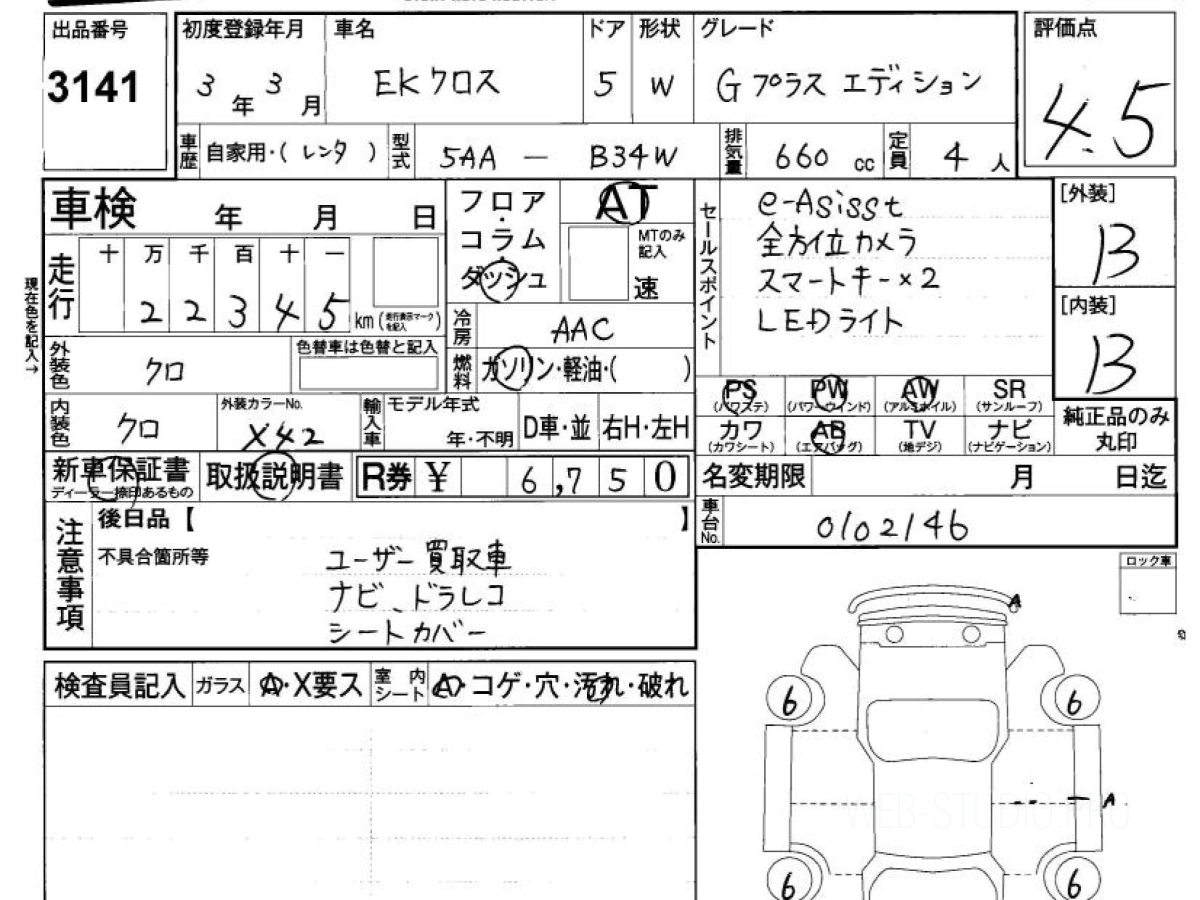 出品番号
3141
初度登録年月 車名 ドア 形状 グレード
3年 3月 EKクロス 5 W Gプラス エディション
評価点
4.5
車歴 自家用・( レンタ ) 型式 5AA - B34W 排気量 660 cc 定員 4 人
車検 年 月 日
走行 十 万 千 百 十 一
2 2 3 4 5 km (走行表示マークを記入)
現在色を記入→
フロア・コラム・ダッシュ
AT
MTのみ記入
速
セールスポイント
e-Asisst
全方位カメラ
スマートキー×2
LEDライト
[外装]
B
[内装]
B
冷房 AAC
燃料 ガソリン・軽油・( )
外装色 クロ
色替車は色替と記入
内装色 クロ
外装カラーNo.
X42
輸入車 モデル年式 年・不明 D車・並 右H・左H
PS (パワステ) PW (パワーウインド) AW (アルミホイル) SR (サンルーフ)
カワ (カワシート) AB (エアバッグ) TV (地デジ) ナビ (ナビゲーション)
純正品のみ丸印
新車保証書 ディーラー捺印あるもの
取扱説明書
R券 ¥ 6,750
名変期限 月 日迄
車台No. 0102146
注意事項
後日品【 】
不具合箇所等
ユーザー買取車
ナビ、ドラレコ
シートカバー
ロック車
検査員記入 ガラス A・X要ス 室内シート A・コゲ・穴・汚れ・破れ
A
6 6
A
6 6
WEB-STUDIO.PRO